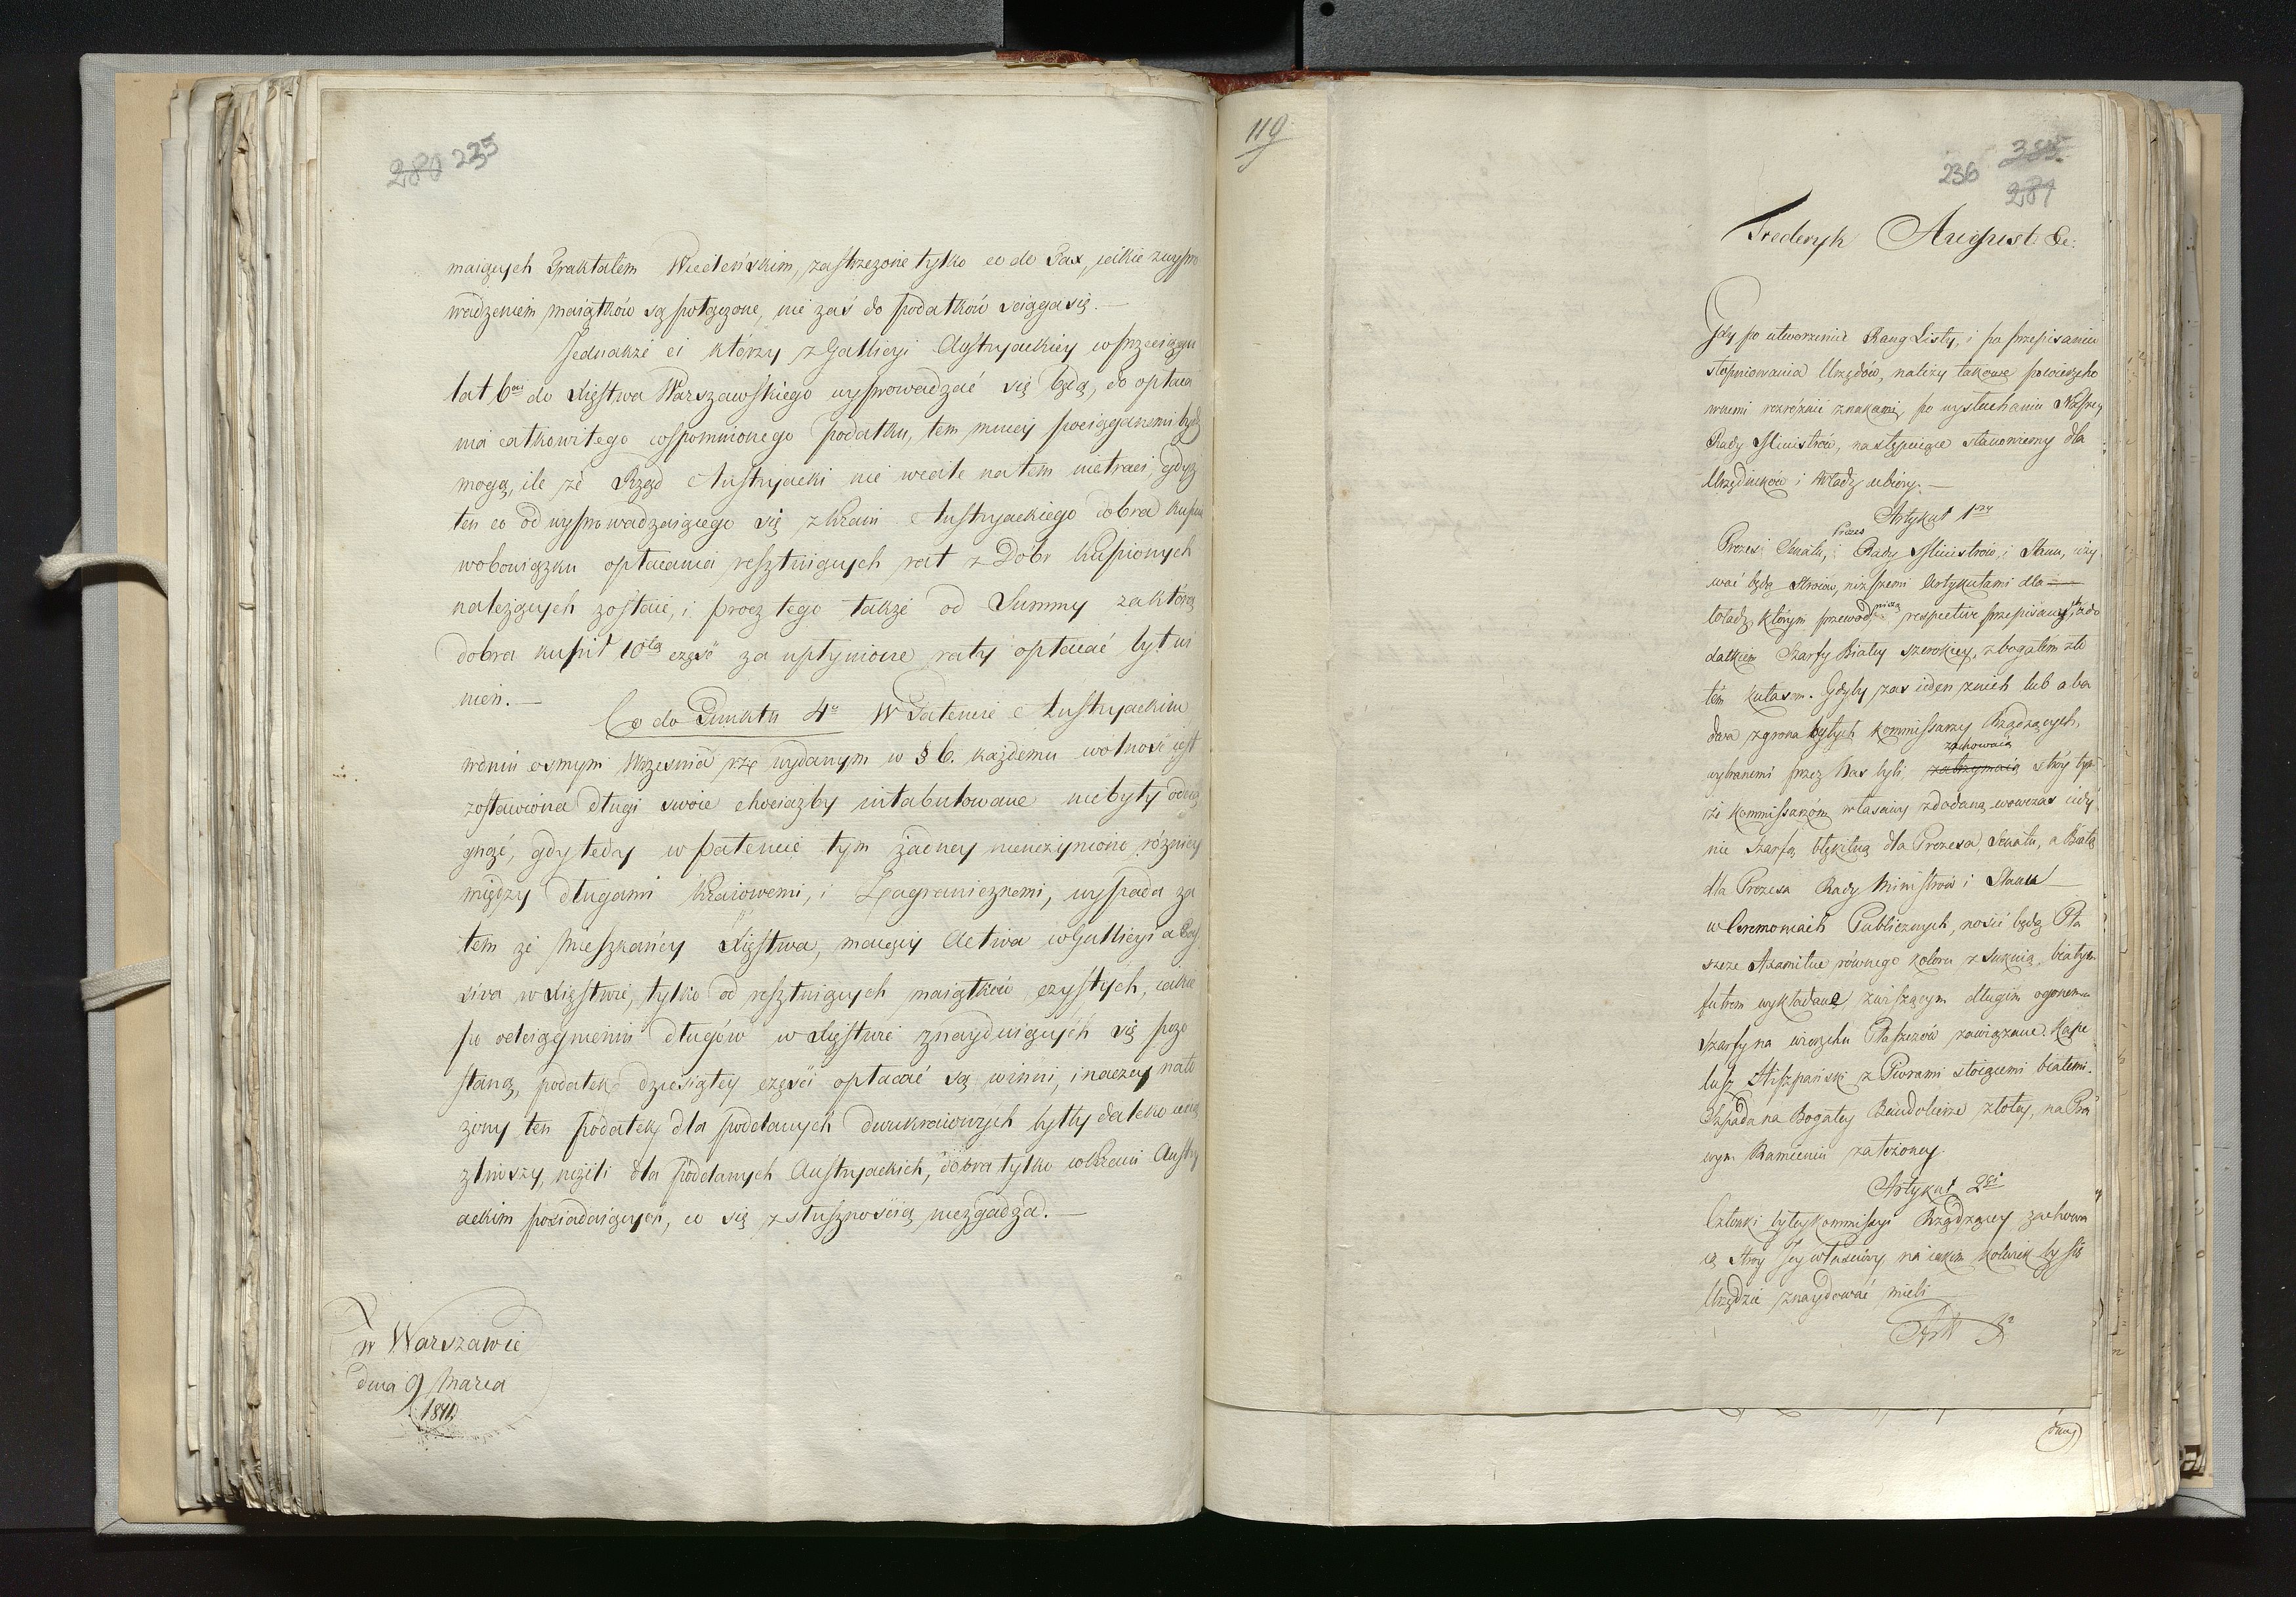 280 235
maiących Traktatem Wiedeńskim, zastrzeżone tylko co do Tax, iakie z wypro
wadzeniem maiątków są połączone, nie zaś do podatków sciąga się. —
Jednakże ci którzy z Gallicyi Austryackiey w przeciągu
lat 6ciu do Xięstwa Warszawskiego wyprowadzać się będą, do opłaca
nia całkowitego wspomnionego podatku, tem mniey pociąganemi bydź
mogą, ile że Rząd Austryacki nic wcale na tem nie traci, gdyż
ten co od wyprowadzaiącego się z Kraiu Austryackiego dobra kupu
w obowiązku opłacania resztuiących rat z Dobr kupionych
należących zostaie, i procz tego także od Summy za którą
dobra kupił 10tą część za upłynione raty opłacać byłwi
nien. —
Co do Punktu 4o W Patencie Austryackim
w dniu osmym Września wydanym w § 6. każdemu wolność iest
zostawiona długi swoie chociażby intabulowane niebyły odcią
gnąć, gdy tedy w patencie tym żadney nieuczyniono różnicy
między długami Kraiowemi, i Zagranicznemi, wypada za
tem że Mieszkańcy Xięstwa, maiący Activa w Gallicyi a Pas
siva w Xięstwie, tylko od resztuiących maiątków czystych, iakie
po odciągnieniu długów w Xięstwie znayduiących się pozo
staną, podatek dziesiątey części opłacać są winni, inaczey nało
żony ten podatek dla poddanych dwukraiowych byłby daleko ucią
żliwszy, niżeli dla poddanych Austryackich, dobra tylko w Kraiu Austry
ackim posiadaiących, co się z słusznością niezgadza. —
w Warszawie
dnia 9 Marca
1811
119
236 385
281
Frederyk August &c:
Gdy po utworzeniu Rang Listy, i po przepisaniu
stopniowania Urzędów, należy takowe powierzcho
wnemi rozróżnić znakami, po wysłuchaniu Naszey
Rady Ministrów, następuiące stanowiemy dla
Urzędników i Władz ubiory. —
Artykuł 1szy
Prezesi Senatu, i Prezes Rady Ministrów, i Stanu, uży
wać będą Stroiów, niższemi Artykułami dla —
Władz, którym przewodniczą respective przepisanych, z do
datkiem Szarfy Białey szerokiey, z bogatem zło
tém kutasem. Gdyby zas ieden z nich lub oba
dwa z grona byłych Kommissarzy Rządzących,
wybranemi przez Nas byli, zatrzymaią zachowaią stróy tym
że Kommissarzom własciwy z dodaną wowczas iedy
nie Szarfą błękitną dla Prezesa, Senatu, a Białą
dla Prezesa Rady Ministrow i Stanu —
w Ceremoniach Publicznych, nosić będą Pła
szcze Axamitne równego koloru z suknią, białym
futrem wykładane, z wiszącym długim ogonem
Szarfy na wierzchu Płaszczów zawiązane. Kape
lusz Hiszpański z Piorami stoiącemi białemi.
Szpada na Bogatey Bandolierze złotey, na Pra
wym Ramieniu założoney.
Artykuł 2gi
Członki byłey Kommissyi Rządzącey zachowa
ią Stroy Jey właściwy, na iakim kolwiek by się
Urzędzie znaydować mieli